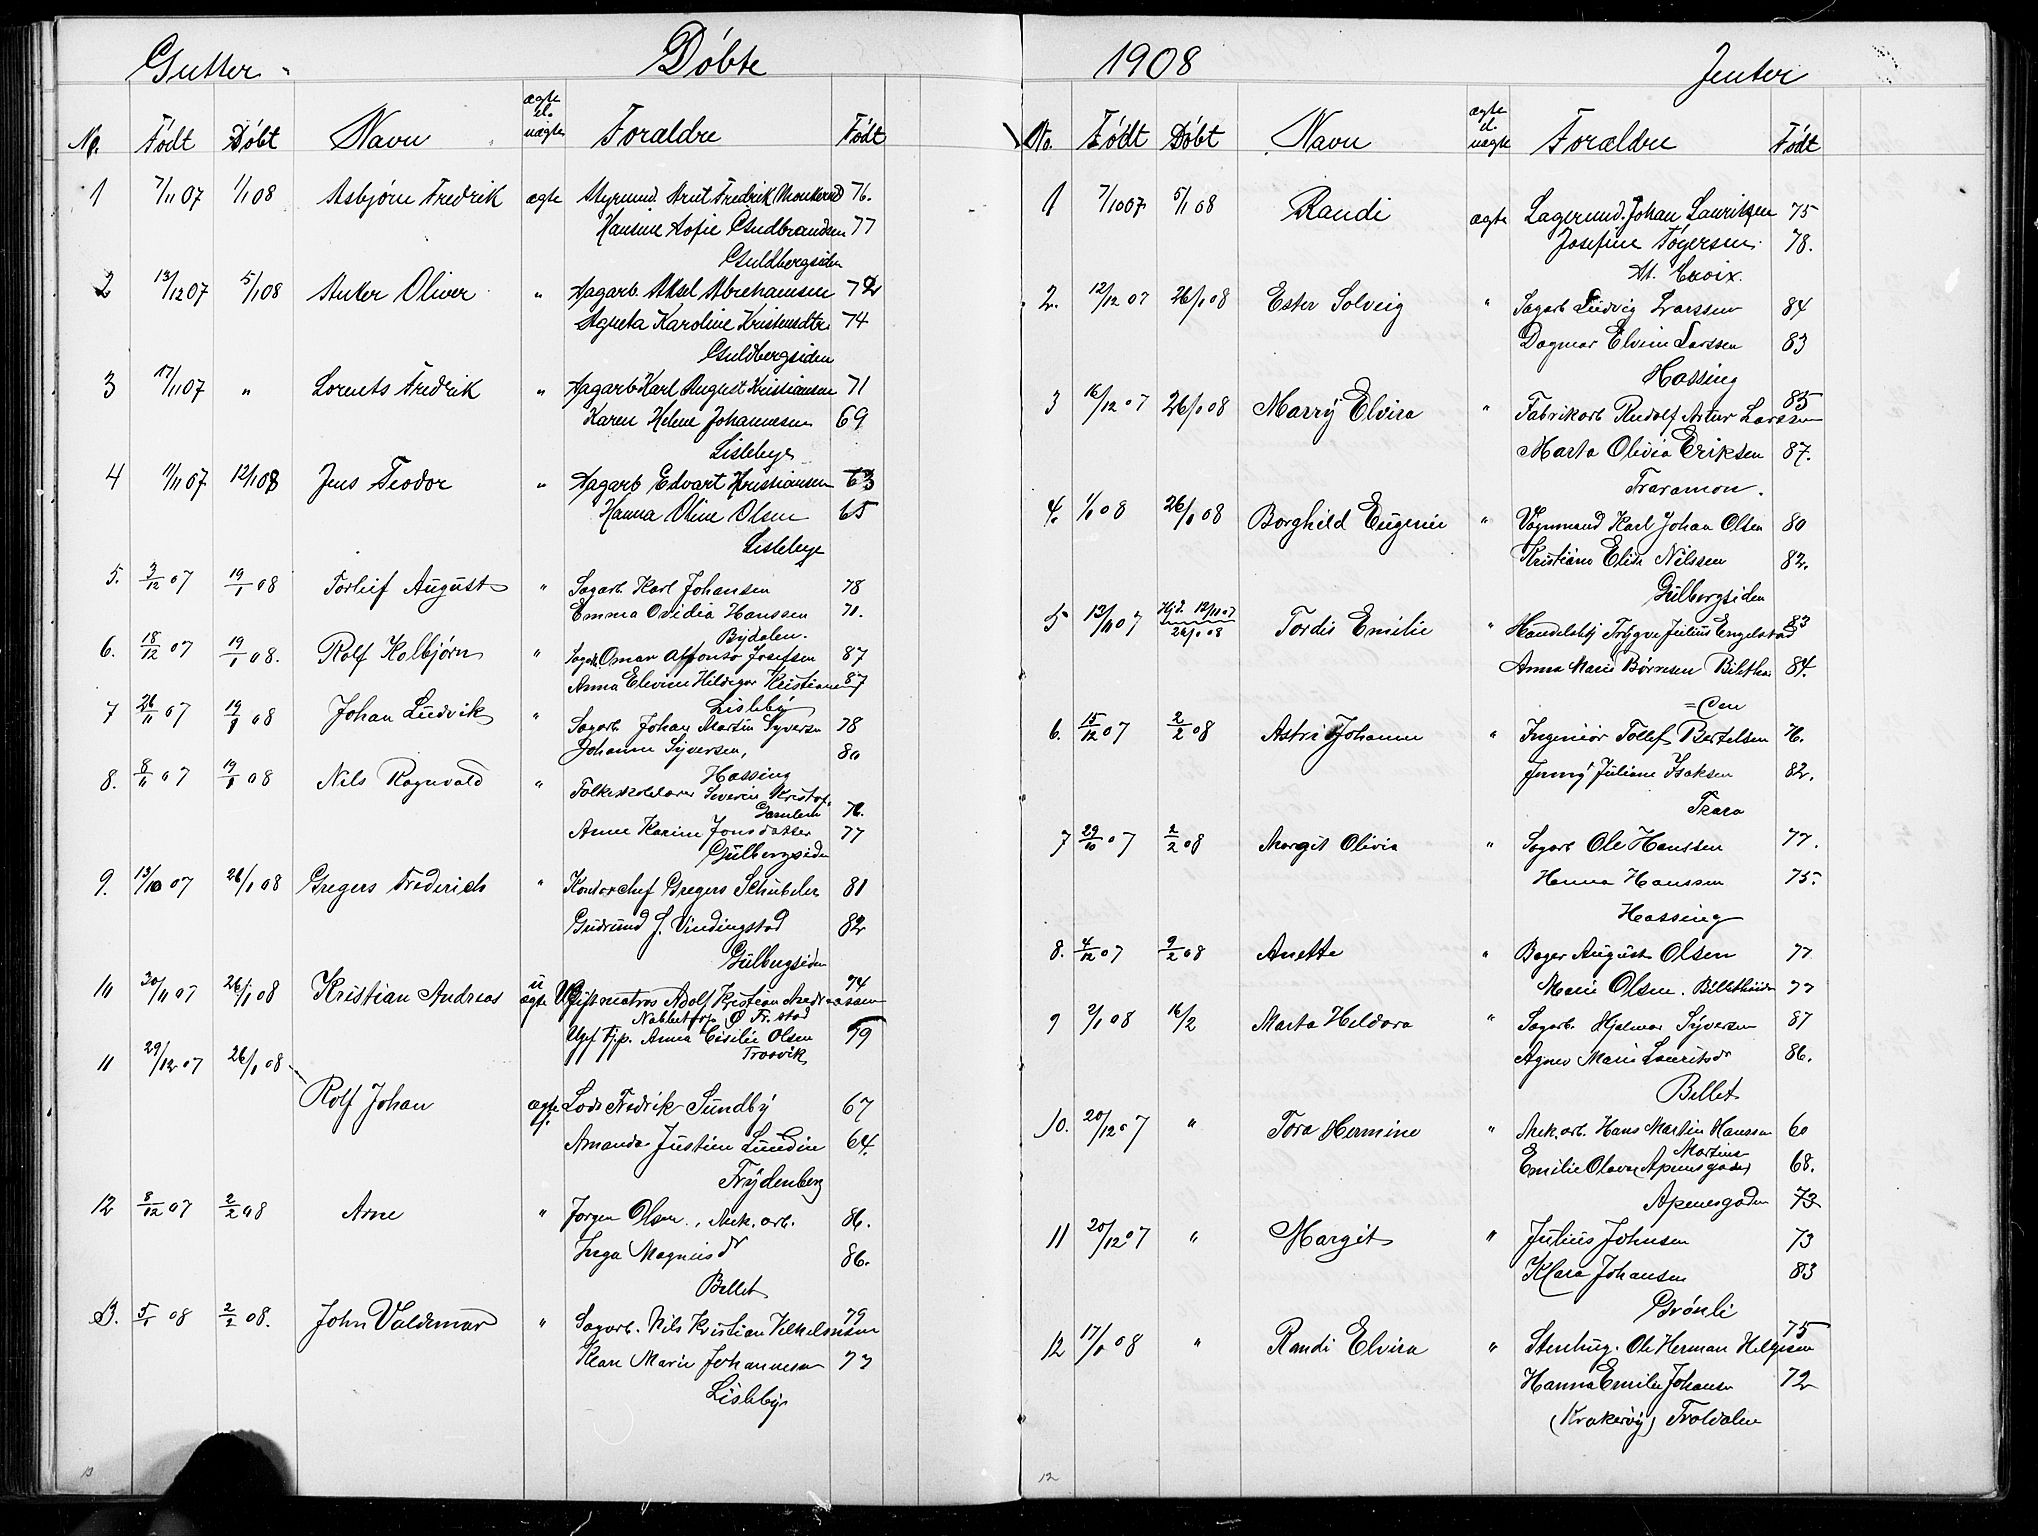 Gutter
Døbte
No. Født Døbt Navn ægte el. uægte Forældre Født
1 7/11 07 1/1 08 Asbjørn Fredrik ægte Styrmand Knut Fredrik 76.
Hansine Sofie Gudbrandsen 77
Guldbergsiden
2 13/12 07 5/1 08 Anker Oliver " Sagarb. Aksel Abrahamsen 72
Agneta Karoline Kristensdtr. 74
Guldbergsiden
3 17/11 07 " Lorents Fredrik " Sagarb Karl August Kristiansen 71
Karen Helene Johannesen 69
Lislebye
4 11/11 07 12/1 08 Jens Teodor " Sagarb Edvart Kristiansen 63
Hanna Oline Olsen 65
Lislebye
5. 3/12 07 19/1 08 Torleif August " Sagarb. Karl Johansen 78
Emma Ovidia Hanssen 71.
Bydalen.
6. 18/12 07 19/1 08. Rolf Kolbjørn " Sagarb. Omar Alfonso Josefsen 87
Anna Elevine Hildegar Kristiansen 87
Lisleby
7 26/11 07 19/1 08 Johan Ludvik " Sagarb. Johan Martin Syversen 78
Johanne Syversen, 80
Hassing
8. 8/11 07 19/1 08 Nils Ragnvald " Folkeskolelærer Severin Kristof.
Gamlem 76.
Anne Karine Jonsdatter 77
Gulbergsiden
9. 13/10 07 26/1 08 Gregers Frederich " Kontorchef Gregers Schübeler 81
Gudrund S. Vindingstad 82
Gulbergsiden
10 30/11 07 26/1 08 Kristian Andreas u ægte Ugift matros Adolf Kristian Andreassen 74
Nabbetorp Ø Fr. stad
Ugf Tjp. Anna Cisilie Olsen 79
Trosvik
11 29/12 07 26/1 08
Rolf Johan ægte f. Lods Fredrik Sundby 67
Amanda Justine Lundin 64.
Frydenberg
12 8/12 07 2/2 08 Arne " Jørgen Olsen, Mek. arb. 86.
Inga Magnusdr 86.
Bellet
13. 5/1 08 2/2 08. John Valdemar " Sagarb. Nils Kristian Vilhelmsen 79
Marie Johannesen 77
Lisleby
13
1908
Jenter
No. Født Døbt Navn ægte el. uægte Forældre Født
1 7/10 07 5/1 08 Randi ægte Lagermd. Johan Lauritzen 75
Josefine Tøgersen. 78.
St. Croix.
2. 12/12 07 26/1 08 Ester Solveig " Sagarb Ludvig Larssen 84
Dagmar Elvine Larssen 83
Hassing
3 16/12 07 26/1 08 Marry Elvira " Fabrikarb Rudolf Artur Larssen 85
Marta Olivia Eriksen 87.
Traramon.
4. 1/1 08 26/1 08 Borghild Eugenie " Vognmand Karl Johan Olsen 80
Kristiane Elise Nilssen 82.
Gulbergsiden
5 13/11 07 Hjd. 12/11 07 26/1 08 Tordis Emilie " Handelsbtj Trygve Julius Engelstad 83
Anna Marie Børresen Biltho 84.
=en
6. 15/12 07 2/2 08 Astri Johanne " Ingeniør Tollef Bertelsen 76.
Jenny Juliane Isaksen 82.
Trara
7 29/10 07 2/2 08 Margit Olivia " Sagarb Ole Hanssen 77.
Hanna Hanssen 75.
Hassing
8. 4/12 07 9/2 08 Anette " Bager August Olsen 77
Marie Olsen. 77
9 2/1 08 16/2 Marta Heldora " Sagarb. Hjalmar Syversen 87
Agnes Marie Lauritsdr 86.
Bellet
10. 20/12 07 " Tora Hermine " Mek. arb. Hans Martin Hansen 60
Martine
Emilie Olava (Apenesgaden) 68.
Apenesgaden 73
11 20/12 07 " Margit " Julius Johnsen 73
Klara Johansen 83
Grønli
12 17/1 08 " Randi Elvira " Stenhug. Ole Herman Helgesen 75
Hanna Emilie Johansen 72
(Krakerøy) Troldalen
12